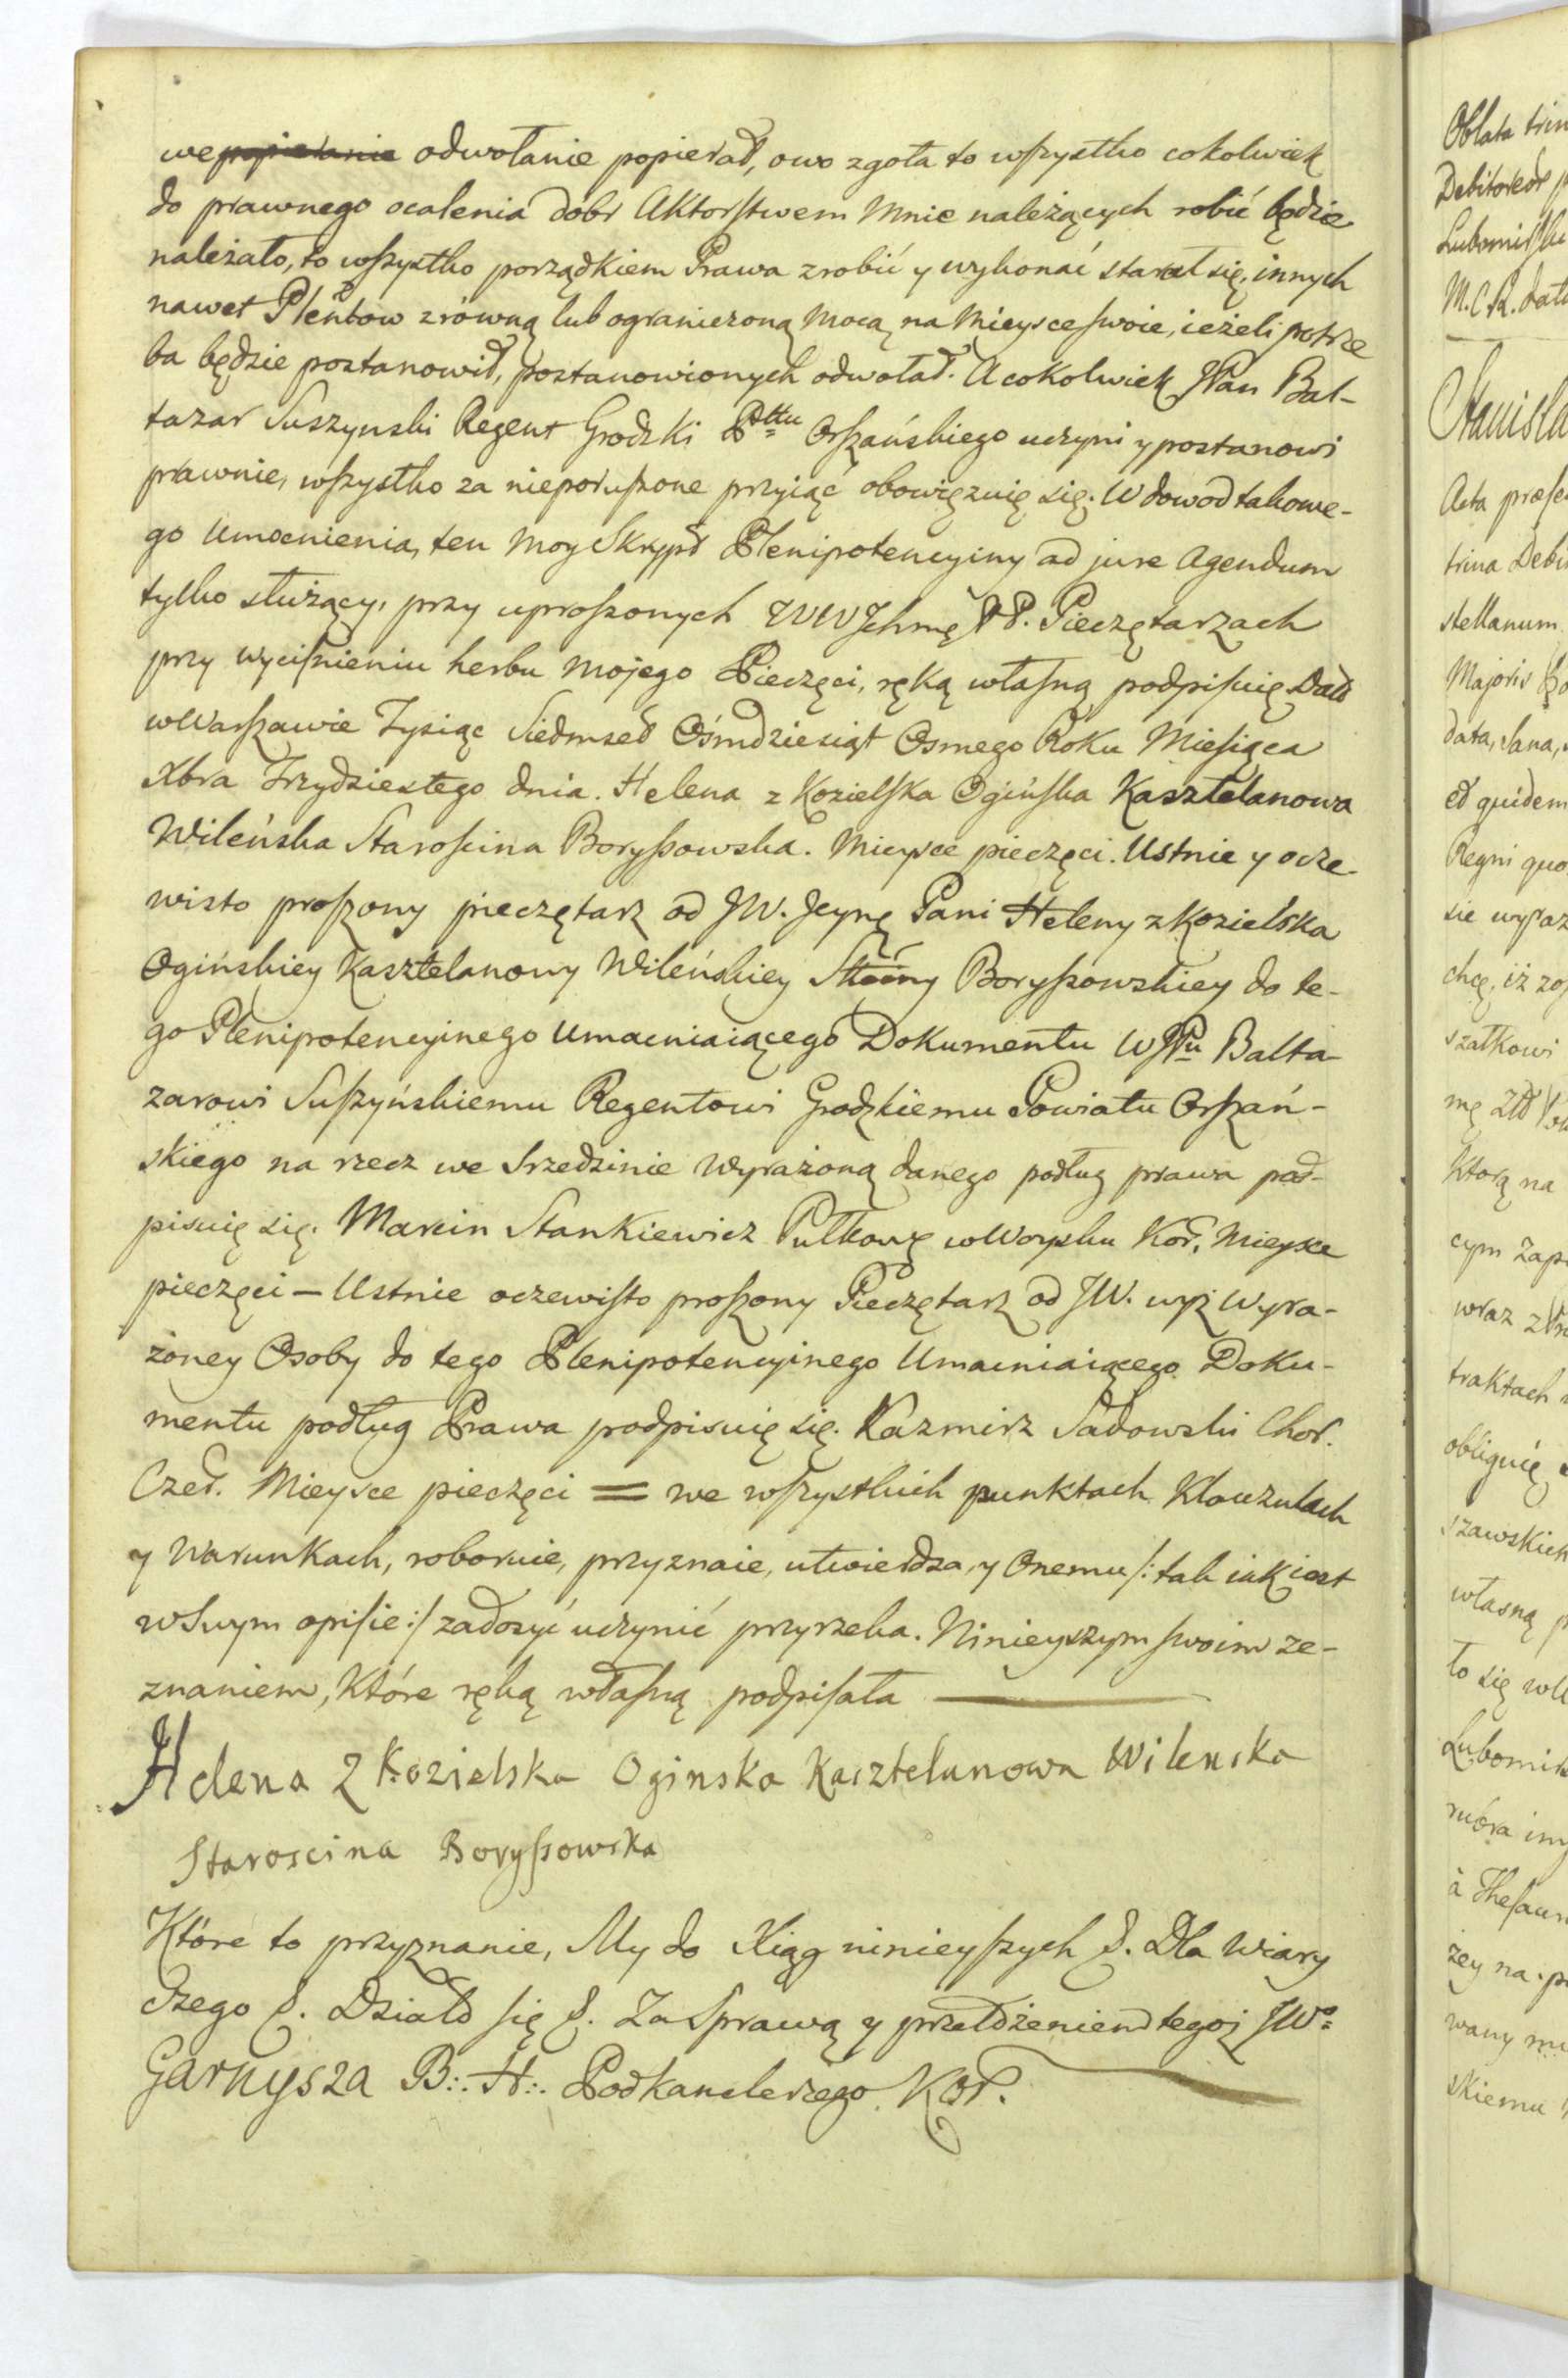 we popieranie odwołanie popierał, owo zgoła to wſzystko cokolwiek
do prawnego ocalenia dobr Aktorſtwem Mnie należących robić będzie
należało, to wſzystko porządkiem Prawa zrobić y wykonać starał się, innych
nawet Pleñtow z równą lub ograniczoną Mocą na Mieysce ſwoie, ieżeli potrze
ba będzie postanowił, postanowionych odwołał. A cokolwiek JPan Bal-
tazar Suszynski Regent Grodzki Pttu Orſzańskiego uczyni y postanowi
prawnie, wſzystko za nieporuſzone przyiąć obowięzuię się. W dowod takowe-
go Umocnienia, ten Moy Skrypt Plenipotencyiny ad jure Agendum
tylko służący, przy uproſzonych WW Jchmę PP. Pieczętarzach
przy wyciſnieniu herbu Mojego Pieczęci, ręką właſną podpiſuię Dat
w Warſzawie Tysiąc Siedmset Ośmdziesiąt Osmego Roku Mieſiąca
Xbra Trzydziestego dnia. Helena z Kozielſka Ogińſka Kasztelanowa
Wileńska Staroſcina Boryſsowska. Mieysce pieczęci. Ustnie y ocze-
wisto proſzony pieczętarz od JW. Jeymę Pani Heleny z Kozielska
Ogińskiey Kasztelanowy Wileńskiey Stściny Boryſsowskiey do te-
go Plenipotencyinego Umacniaiącego Dokumentu WJPu Balta-
zarowi Suſzyńskiemu Regentowi Grodzkiemu Powiatu Orſzań-
skiego na rzecz we Srzedzinie Wyrażoną danego podług prawa pod-
pisuię się. Marcin Stankiewicz Pułkowg w Woysku Kor. Mieysce
pieczęci — Ustnie oczewiſto proſzony Pieczętarz od JW. wyż Wyra-
żoney Osoby do tego Plenipotencyinego Umacniaiącego Doku-
mentu podług Prawa podpisuię się. Kazmirz Sadowski Chor.
Czer. Mieysce pieczęci = we wſzystkich punktach Klauzulach
y Warunkach, roboruie, przyznaie, utwierdza, y Onemu /: tak iak iest
w Swym opiſie :/ zadosyć uczynić przyrzeka. Ninieyszym ſwoim ze-
znaniem, Które ręką właſną podpiſała —
Helena z Kozielska Oginska Kasztelanowa Wilenska
Staroscina Boryſsowska
Które to przyznanie, My do Xiąg ninieyſzych &. Dla Wiary
Czego &. Działo ſię &. Za Sprawą y przełożeniem tegoż JWo
Garnysza B:. H:. Podkanclerzego Kor.
Oblata trin
Debitoreor
Lubomirſki
M. C. R. dat
Stanisla
Acta præſe
trina Debi
stellanum
Majoris
data, Sana,
et quidem
Regni quo
sie wyraz
chcę, iż zo
szałkowi
mę
Ktorą na
cym Zap
wraz z
traktach
obliguię
szawskich
własną p
to się w
Lubomir
mbra im
à Theſaur
żey na p
wany m
skiemu